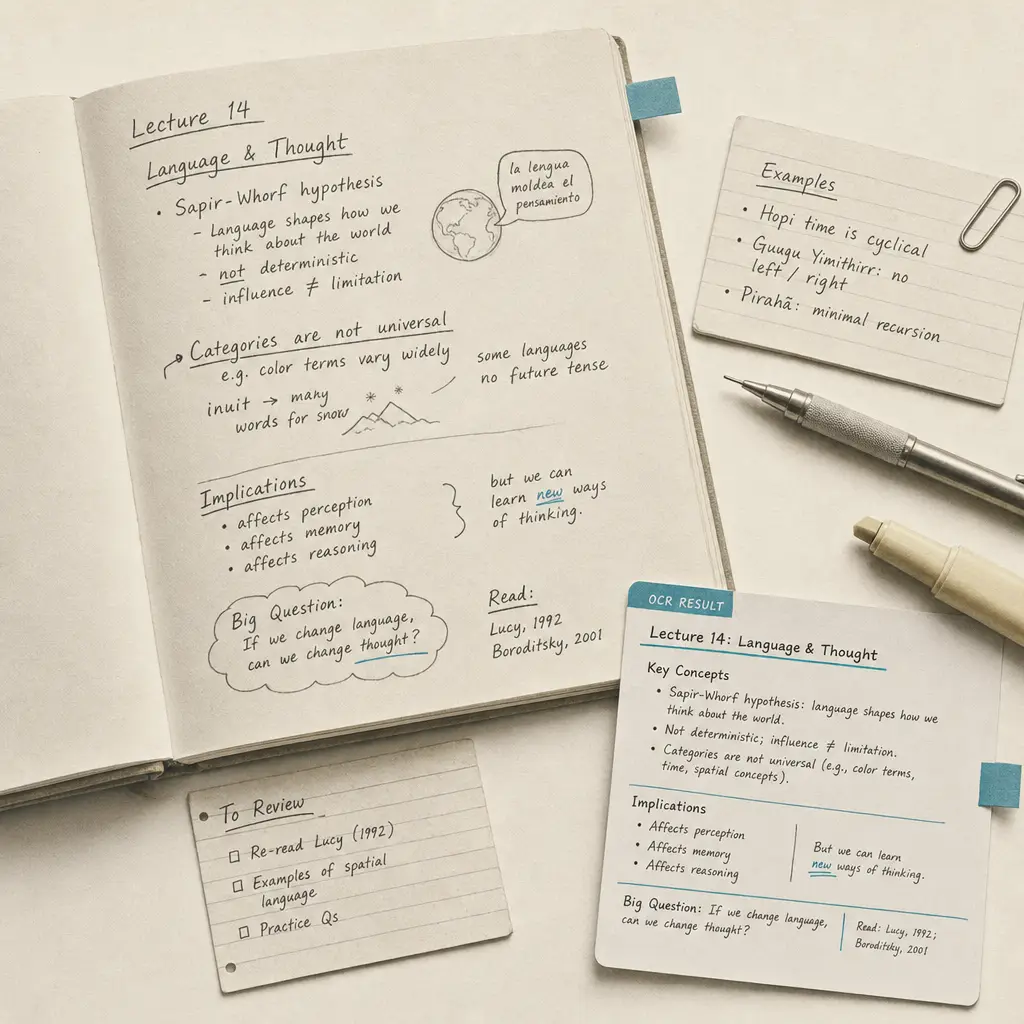 Lecture 14
Language & Thought
• Sapir-Whorf hypothesis
– Language shapes how we
think about the world
– not deterministic
– influence ≠ limitation
la lengua
moldea el
pensamiento
Categories are not universal
e.g. color terms vary widely
inuit → many
words for snow
some languages
no future tense
Implications
• affects perception
• affects memory
• affects reasoning
but we can
learn new ways
of thinking.
Big Question:
If we change language,
can we change thought?
Read:
Lucy, 1992
Boroditsky, 2001
Examples
• Hopi time is cyclical
• Guugu Yimithirr: no
left / right
• Pirahã: minimal recursion
To Review
☐ Re-read Lucy (1992)
☐ Examples of spatial
language
☐ Practice Qs
OCR RESULT
Lecture 14: Language & Thought
Key Concepts
• Sapir-Whorf hypothesis: language shapes how we
think about the world.
• Not deterministic; influence ≠ limitation.
• Categories are not universal (e.g., color terms,
time, spatial concepts).
Implications
• Affects perception
• Affects memory
• Affects reasoning
But we can learn
new ways of thinking.
Big Question: If we change language,
can we change thought?
Read: Lucy, 1992;
Boroditsky, 2001